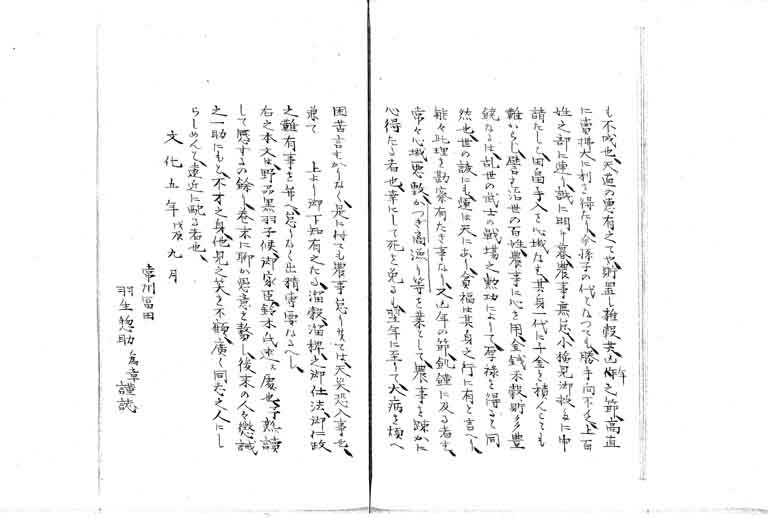 も不成也、天道の恵有之てや貯置し雑穀其山作之節、高直
に売捌大に利を得たり、余孫子の代となつても勝手向不宜、上百
姓之部に連り、誠に明け暮農事無怠小検見御救等に申
請たし、田畠手入を心域なす、其身一代に千金を積んとても
難からじ、譬言ば治世の百姓農事に心を用、金銭米穀貯多豊
饒なるは、乱世の武士の戦場之勲功によりて厚禄を得ると同
然也、世の諺にも運は天にあり、貧福は其身之行に有と言へり、
能々此理を勘察有たき事なり、凶年の節飢鐘に及る者も、
常々心域悪敷かつぎ商漁り等を業として、農事を疎かに
心得たる者也、幸にして死を免るも、翌年に至りて大病を煩へ
困苦言はかりなく、是に付ても農事怠り候ては天災恐入事也、
兼て 上より御下知有之たる溜穀溜稗之御仕法、御仁政
之難有事を弁へ、怠りなく出精専要なるへし、
右之本文は野州黒羽子候御家臣鈴木氏述る處也、予熟読
して感するの餘り、巻末に聊か愚意を贅し、後来の人々懲誡
之一助にもと不才之身他見之笑を不顧、廣く同志之人にし
らしめんと、遠近に馳る者也、
文化五年戊辰九月
常州冨田
羽生惣助為章謹誌